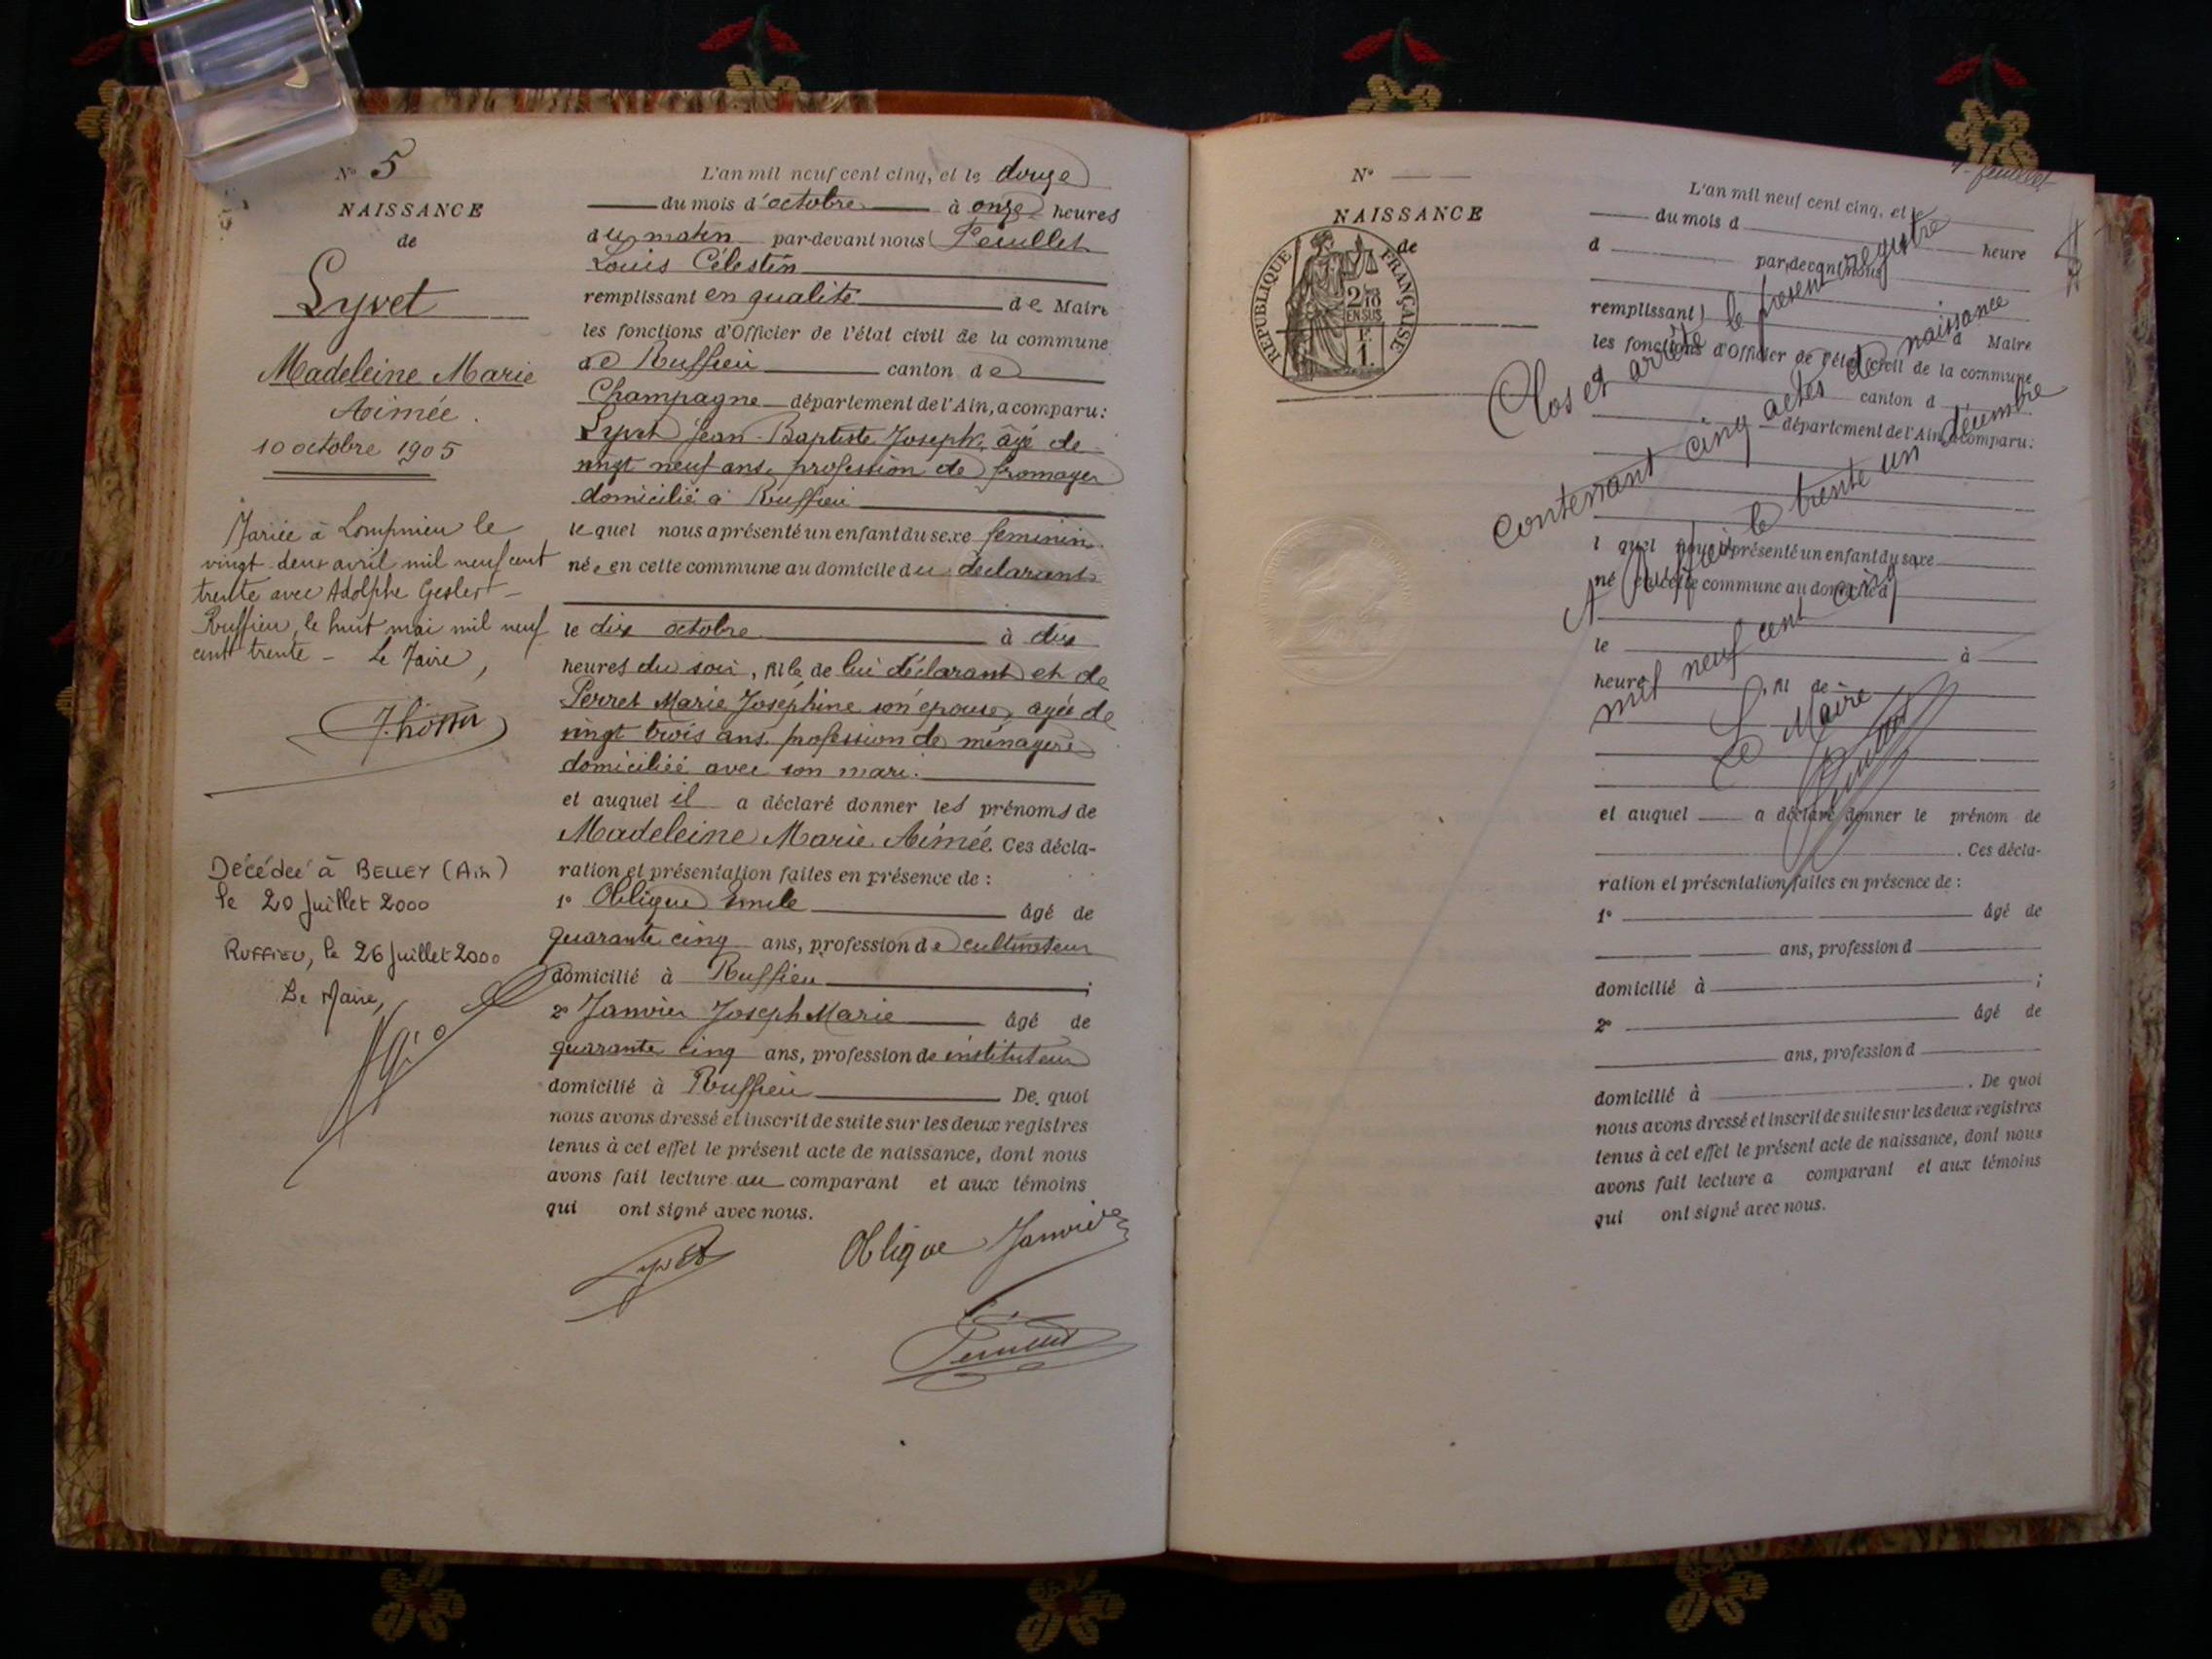 N° 5
NAISSANCE
de
Lyvet
Madeleine Marie
Aimée.
10 octobre 1905
Mariée à Lompnieu le
vingt-deux avril mil neuf cent
trente avec Adolphe Gesler -
Ruffieu, le huit mai mil neuf
cent trente - Le Maire,
Décédée à BELLEY (Ain)
le 20 Juillet 2000
RUFFIEU, le 26 Juillet 2000
Le Maire,
L'an mil neuf cent cinq, et le douze
du mois d'octobre à onze heures
du matin par-devant nous Peuillet
Louis Célestin
remplissant en qualité de Maire
les fonctions d'Officier de l'état civil de la commune
de Ruffieu canton de
Champagne département de l'Ain, a comparu:
Lyvet Jean-Baptiste Joseph, âgé de
vingt neuf ans, profession de fromager
domicilié à Ruffieu
le quel nous a présenté un enfant du sexe féminin
née en cette commune au domicile du déclarant
le dix octobre à dix
heures du soir, fille de lui déclarant et de
Perret Marie Joséphine son épouse, agée de
vingt trois ans, profession de ménagère
domiciliée avec son mari.
et auquel il a déclaré donner les prénoms de
Madeleine Marie Aimée. Ces décla-
ration et présentation faites en présence de :
1° Oblique Emile âgé de
quarante cinq ans, profession de cultivateur
domicilié à Ruffieu ;
2° Janvier Joseph Marie âgé de
quarante cinq ans, profession de instituteur
domicilié à Ruffieu De quoi
nous avons dressé et inscrit de suite sur les deux registres
tenus à cet effet le présent acte de naissance, dont nous
avons fait lecture au comparant et aux témoins
qui ont signé avec nous.
Lyvet Oblique Janvier
Peuillet
4e feuillet
N°
NAISSANCE
de
REPUBLIQUE FRANÇAISE
2/10
EN SUS
L'an mil neuf cent cinq, et le
du mois d
à heure
d par-devant nous
remplissant
d Maire
les fonctions d'Officier de l'état civil de la commune
d canton d
département de l'Ain, a comparu:
l quel nous a présenté un enfant du sexe
né en cette commune au domicile d
le à
heure , fil de
et auquel a déclaré donner le prénom de
. Ces décla-
ration et présentation faites en présence de :
1° âgé de
ans, profession d
domicilié à ;
2° âgé de
ans, profession d
domicilié à . De quoi
nous avons dressé et inscrit de suite sur les deux registres
tenus à cet effet le présent acte de naissance, dont nous
avons fait lecture a comparant et aux témoins
qui ont signé avec nous.
Clos et arrêté le présent registre
contenant cinq actes de naissance
A Ruffieu le trente un décembre
mil neuf cent cinq
Le Maire